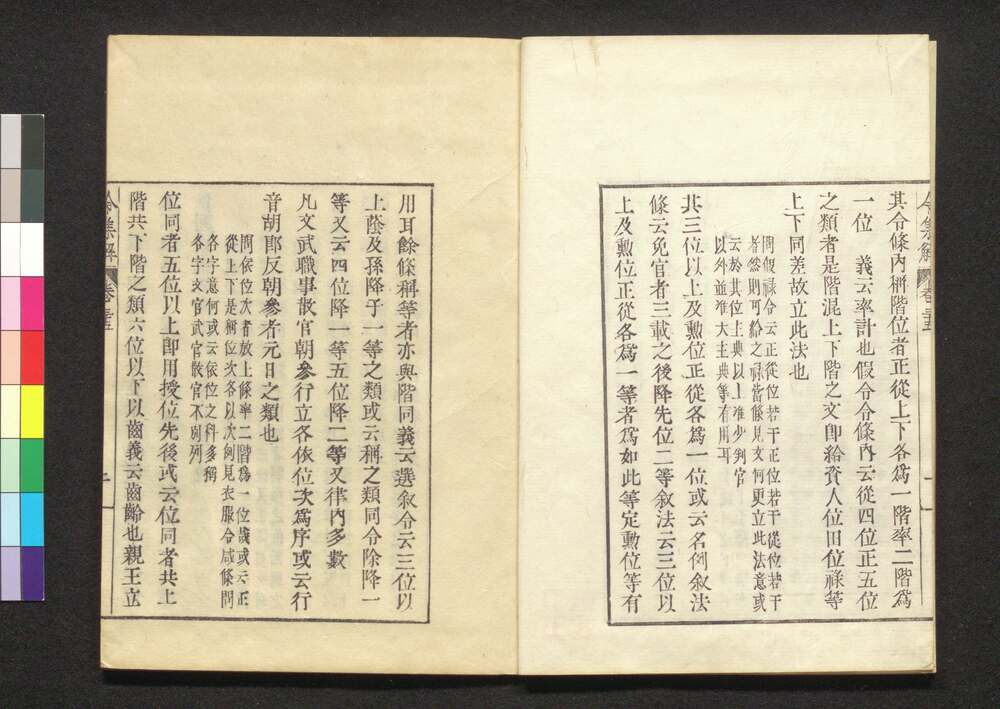 令集解 卷三十五
其令條內稱階位者正從上下各爲一階率二階爲
一位 義云率計也假令令條內云從四位正五位
之類者是階混上下階之文卽給資人位田位祿等
上下同差故立此法也
問假祿令云正從位若干正位若干從位若干
者然則可給之祿當條見文何更立此法意或
云於其位主典以上准少判官
以外並准大主典等有用耳
其三位以上及勲位正從各爲一位或云名例敘法
條云免官者三載之後降先位二等敘法云三位以
上及勲位正從各爲一等者爲如此等定勲位等有
用耳餘條稱等者亦與階同義云選敘令云三位以
上蔭及孫降子一等之類或云稱之類同令除降一
等又云四位降一等五位降二等又律內多數
凡文武職事散官朝參行立各依位次爲序或云行
音胡郎反朝參者元日之類也
問依位次者放上條率二階爲一位哉或云正
從上下是稱位次各以次例見衣服令咸條問
各字意何或云依位之科多稱
各字文官武官散官不別列
位同者五位以上卽用授位先後或云位同者共上
階共下階之類六位以下以齒義云齒齡也親王立
令集解 卷三十五